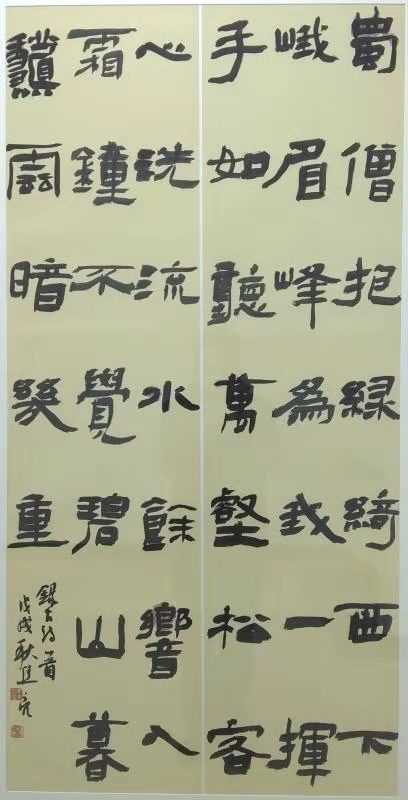 蜀僧抱緑綺西下
峨眉峰為我一揮
手如聽萬壑松客
心洗流水餘響入
霜鐘不覺碧山暮
雲暗幾重
録古詩一首
戊戌